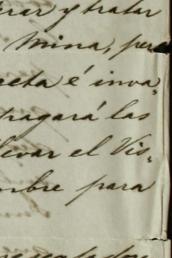 rar y tratar
Mina, per
cta é inva-
pagará las
llevar el Vis-
mbre para